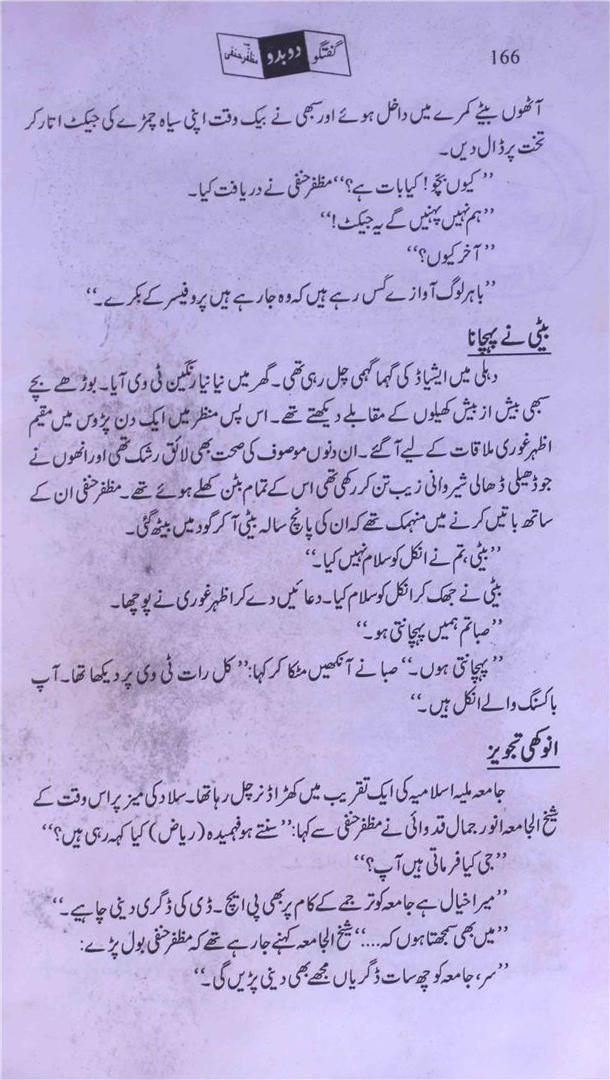 166
گفتگو دوبدو مظفر حنفی
آٹھوں بیٹے کمرے میں داخل ہوئے اور سبھی نے بیک وقت اپنی سیاہ چمڑے کی جیکٹ اتار کر
تخت پر ڈال دیں۔
’’کیوں بچو! کیا بات ہے؟‘‘ مظفر حنفی نے دریافت کیا۔
’’ہم نہیں پہنیں گے یہ جیکٹ!‘‘
’’آخر کیوں؟‘‘
’’باہر لوگ آوازے کس رہے ہیں کہ وہ جا رہے ہیں پروفیسر کے بکرے۔‘‘
بیٹی نے پہچانا
دہلی میں ایشیاڈ کی گہما گہمی چل رہی تھی۔ گھر میں نیا نیا رنگین ٹی وی آیا۔ بوڑھے بچے
سبھی بیش از بیش کھیلوں کے مقابلے دیکھتے تھے۔ اس پس منظر میں ایک دن پڑوس میں مقیم
اظہر غوری ملاقات کے لیے آگئے۔ ان دنوں موصوف کی صحت بھی لائق رشک تھی اور انھوں نے
جو ڈھیلی ڈھالی شیروانی زیب تن کر رکھی تھی اس کے تمام بٹن کھلے ہوئے تھے۔ مظفر حنفی ان کے
ساتھ باتیں کرنے میں منہمک تھے کہ ان کی پانچ سالہ بیٹی آ کر گود میں بیٹھ گئی۔
’’بیٹی، تم نے انکل کو سلام نہیں کیا۔‘‘
بیٹی نے جھک کر انکل کو سلام کیا۔ دعائیں دے کر اظہر غوری نے پوچھا۔
’’صبا تم ہمیں پہچانتی ہو۔‘‘
’’پہچانتی ہوں۔‘‘ صبا نے آنکھیں مٹکا کر کہا: ’’کل رات ٹی وی پر دیکھا تھا۔ آپ
باکسنگ والے انکل ہیں۔‘‘
انوکھی تجویز
جامعہ ملیہ اسلامیہ کی ایک تقریب میں کھڑا ڈنر چل رہا تھا۔ سلاد کی میز پر اس وقت کے
شیخ الجامعہ انور جمال قدوائی نے مظفر حنفی سے کہا: ’’سنتے ہو فہمیدہ (ریاض) کیا کہہ رہی ہیں؟‘‘
’’جی کیا فرماتی ہیں آپ؟‘‘
’’میرا خیال ہے جامعہ کو ترجمے کے کام پر بھی پی ایچ۔ ڈی کی ڈگری دینی چاہیے۔‘‘
’’میں بھی سمجھتا ہوں کہ....‘‘ شیخ الجامعہ کہنے جا رہے تھے کہ مظفر حنفی بول پڑے:
’’سر، جامعہ کو چھ سات ڈگریاں مجھے بھی دینی پڑیں گی۔‘‘